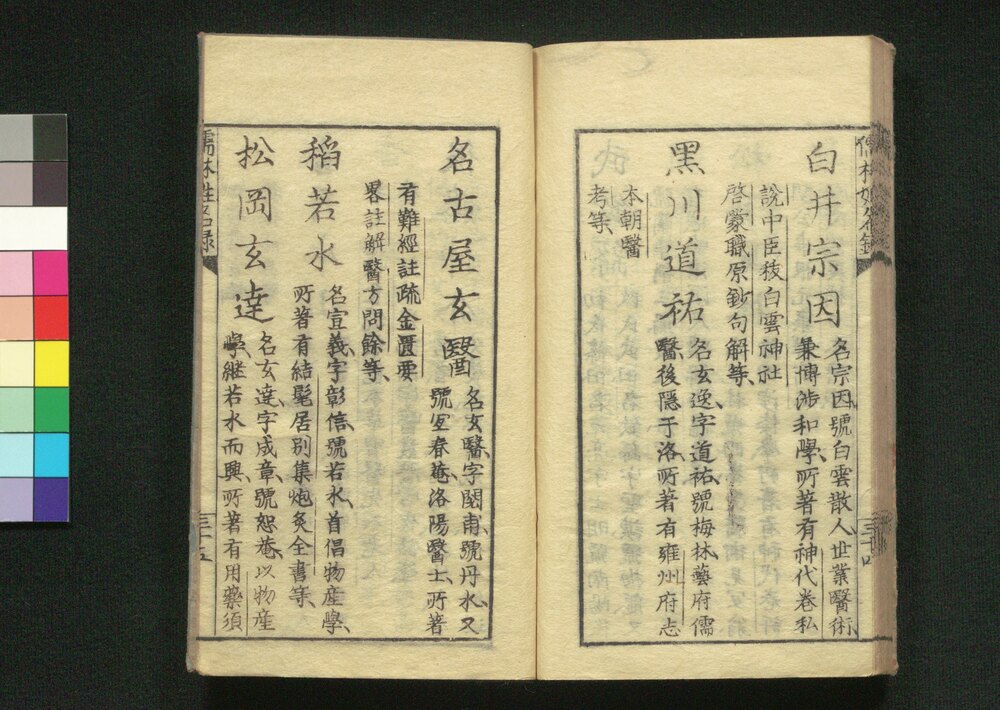 儒林姓名録
白井宗因
名宗因號白雲散人世業醫術
兼博渉和學所著有神代巻私
說中臣秡白雲神社
啓蒙職原鈔句解等
黒川道祐
名玄逸字道祐號梅林藝府儒
醫後隠于洛所著有雍州府志
本朝醫
考等
三十四
名古屋玄醫
名玄醫字閎甫號丹水又
號宜春菴洛陽醫士所著
有難經註疏金匱要
畧註解醫方問餘等
稻若水
名宣義字彰信號若水首倡物産學
所著有結髦居別集炮炙全書等
松岡玄達
名玄達字成章號恕菴以物産
學継若水而興所著有用藥須
儒林姓名録
三十五